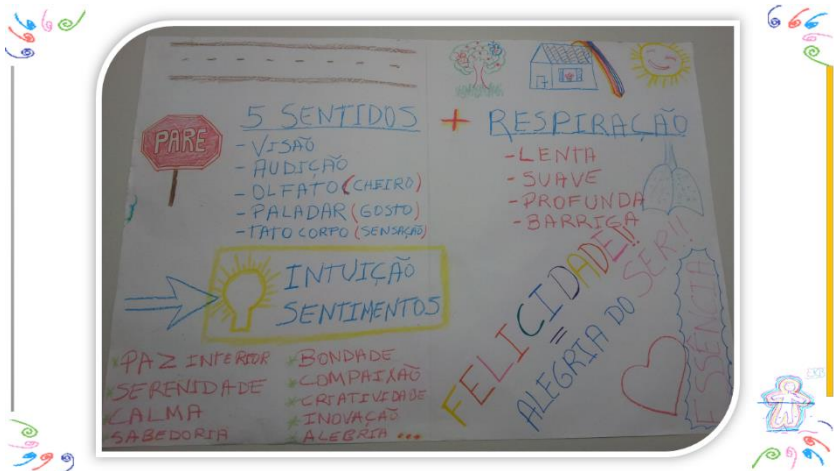 PARE
5 SENTIDOS + RESPIRAÇÃO
- VISÃO
- AUDIÇÃO
- OLFATO (CHEIRO)
- PALADAR (GOSTO)
- TATO CORPO (SENSAÇÃO)
- LENTA
- SUAVE
- PROFUNDA
- BARRIGA
INTUIÇÃO
SENTIMENTOS
PAZ INTERIOR
SERENIDADE
CALMA
SABEDORIA
BONDADE
COMPAIXÃO
CRIATIVIDADE
INOVAÇÃO
ALEGRIA ...
FELICIDADE!!
=
ALEGRIA DO SER!!
ESSÊNCIA